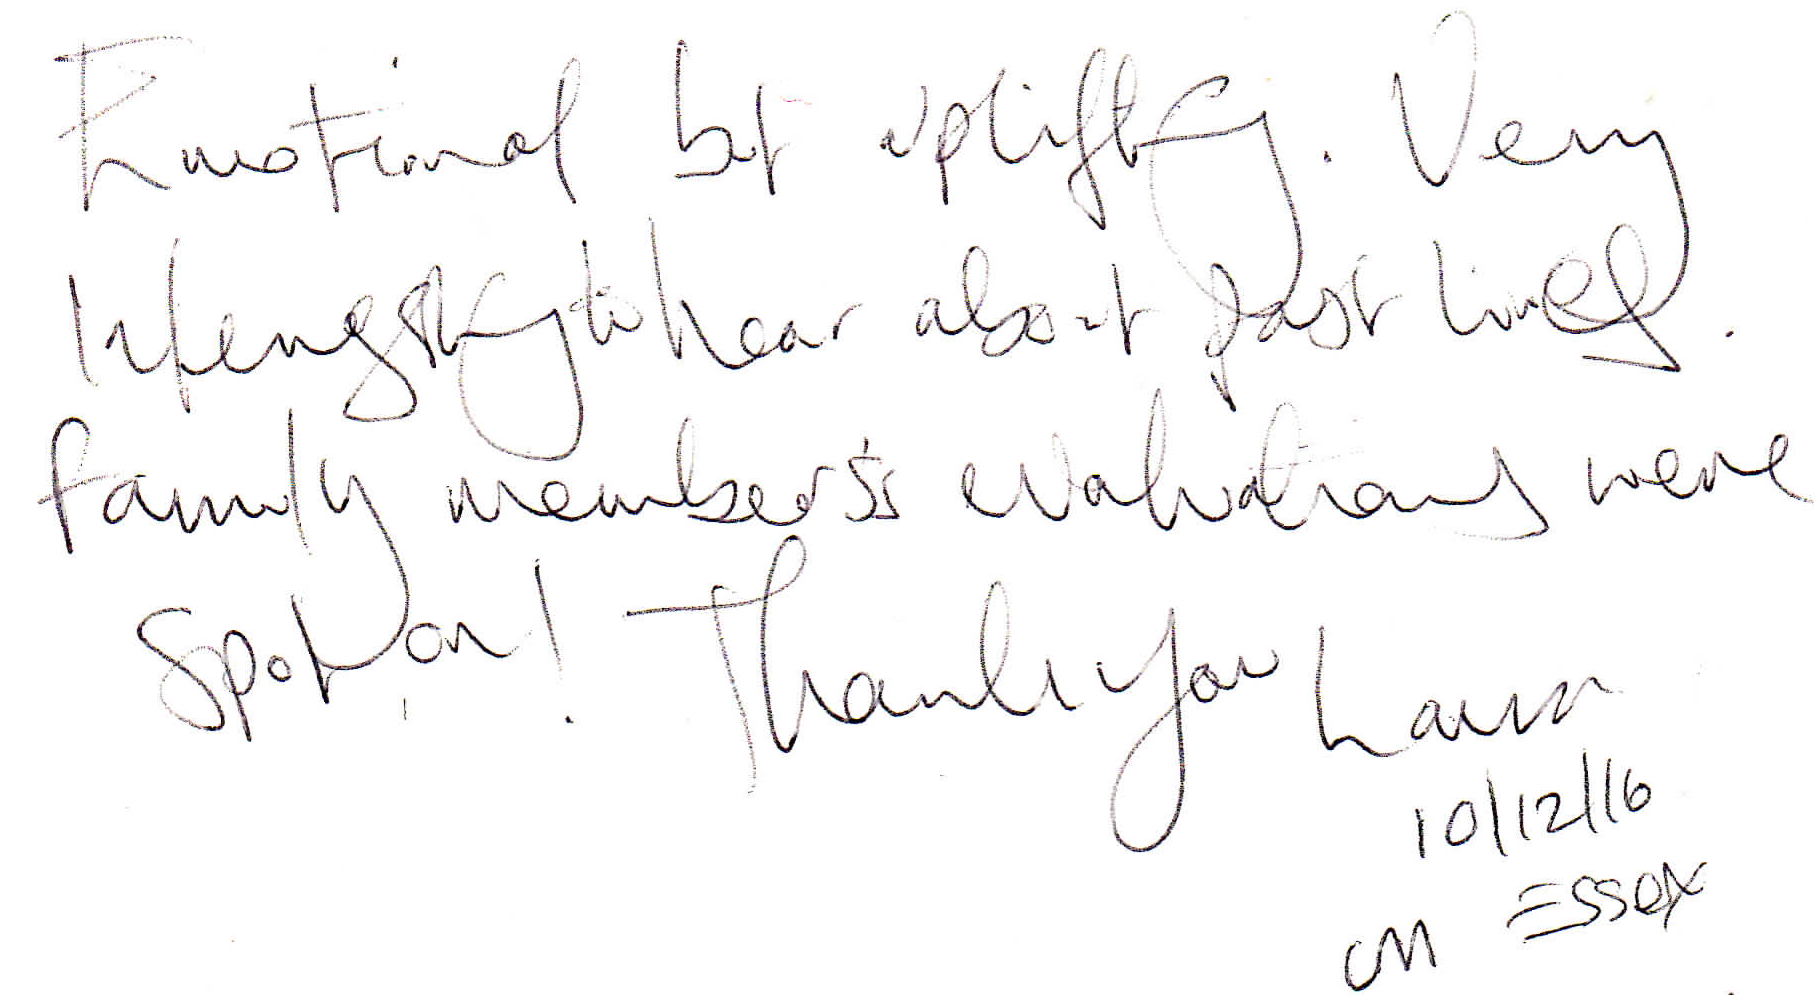 Emotional but uplifting. Very
Interesting to hear about past lives.
Family member's evaluations were
Spot on! Thank you Laura
10/12/16
CM ESSEX